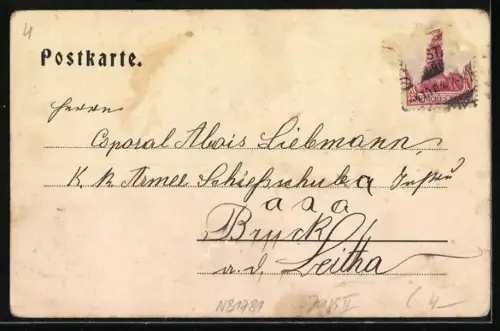 4
Postkarte.
Herrn
Coporal Alois Liebmann
K. K. Armee Schießschule a
a a a
Bruck
a. d. Leitha
NB1781